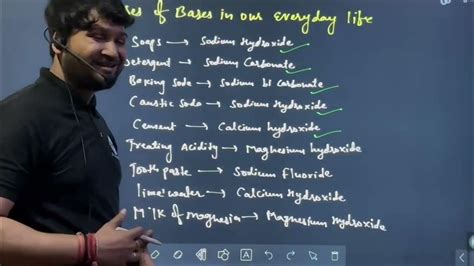 es of Bases in our everyday life
Soaps → Sodium Hydroxide ✓
Detergent → Sodium Carbonate ✓
Baking Soda → Sodium bi Carbonate ✓
Caustic Soda → Sodium Hydroxide ✓
Cement → Calcium hydroxide ✓
Treating Acidity → Magnesium hydroxide
Tooth paste → Sodium fluoride
lime water → Calcium Hydroxide
Milk of magnesia → Magnesium Hydroxide